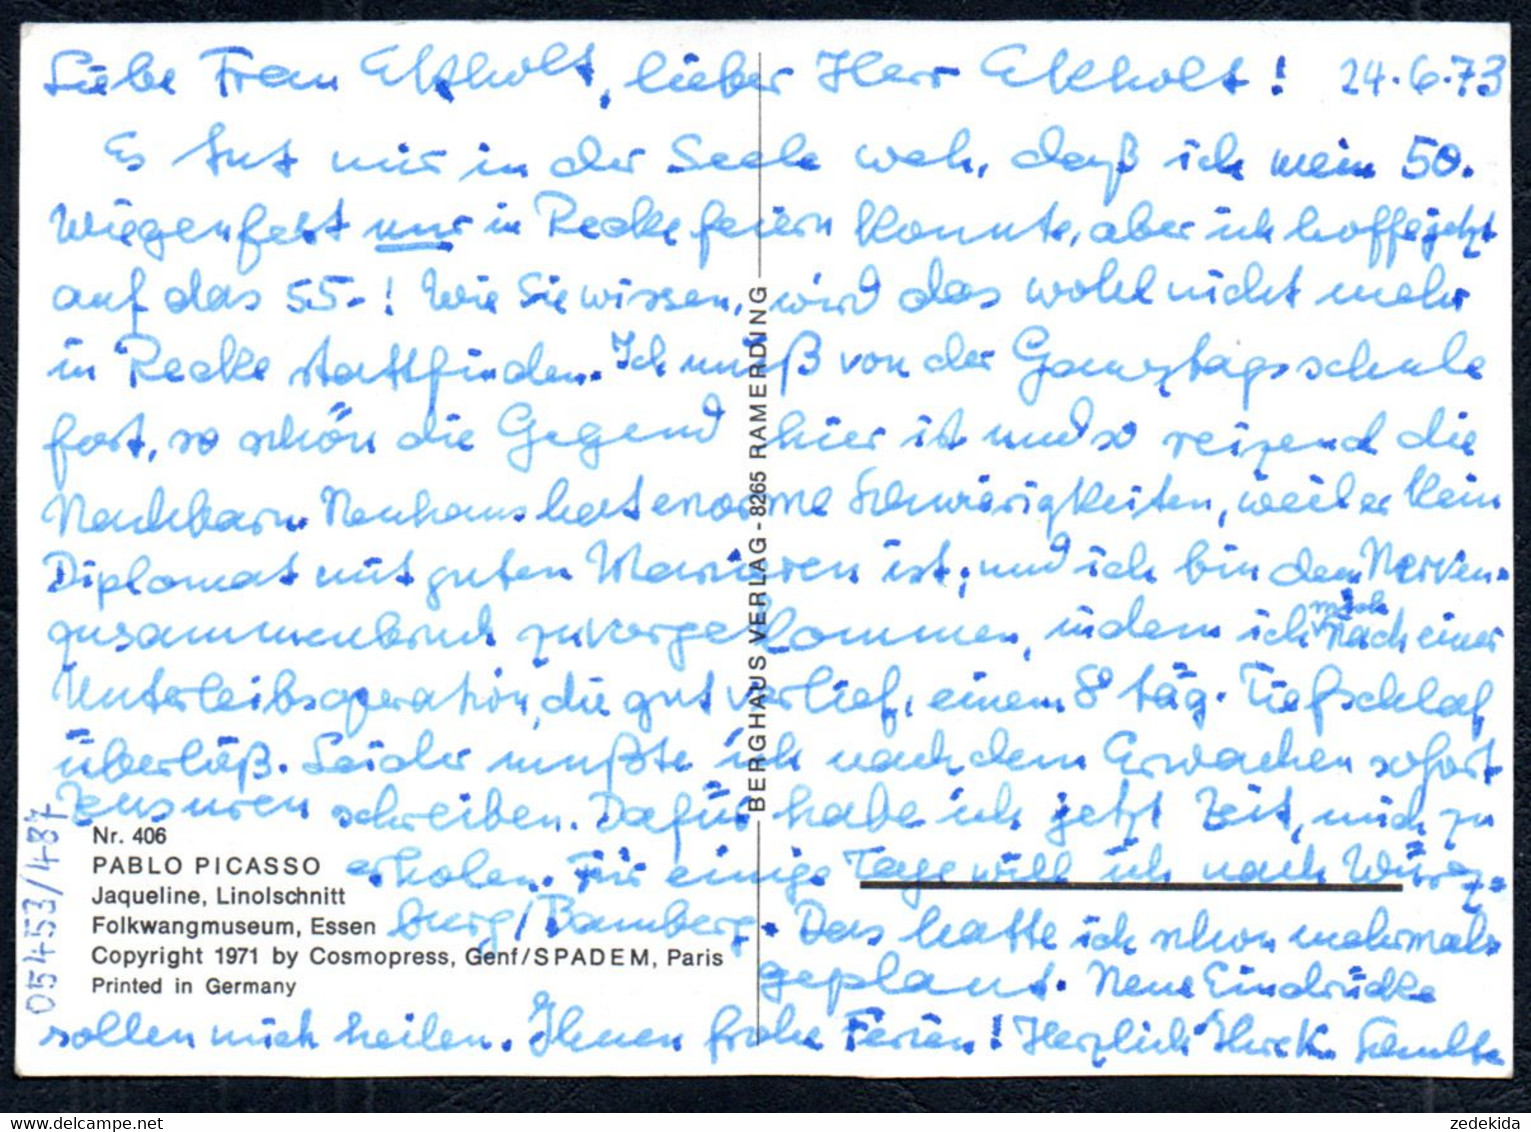 Liebe Frau Ekholt, lieber Herr Ekholt! 24.6.73
Es tut mir in der Seele weh, daß ich mein 50.
Wiegenfest nur in Recke feiern konnte, aber ich hoffe jetzt
auf das 55.! Wie Sie wissen, wird das wohl nicht mehr
in Recke stattfinden. Ich muß von der Ganztagsschule
fort, so schön die Gegend hier ist und so reizend die
Nachbarn. Neuhaus hat enorme Schwierigkeiten, weil er kein
Diplomat mit guten Manieren ist, und ich bin dem Nerven-
zusammenbruch zuvorgekommen, indem ich mich nach einer
Unterleibsoperation, die gut verlief, einem 8 täg. Tiefschlaf
überließ. Leider mußte ich nach dem Erwachen sofort
Zensuren schreiben. Dafür habe ich jetzt Zeit, mich zu
erholen. Für einige Tage will ich nach Würz-
burg/Bamberg. Das hatte ich schon mehrmals
geplant. Neue Eindrücke
sollen mich heilen. Ihnen frohe Ferien! Herzlich Ihre K. Schulte
Nr. 406
PABLO PICASSO
Jaqueline, Linolschnitt
Folkwangmuseum, Essen
Copyright 1971 by Cosmopress, Genf/SPADEM, Paris
Printed in Germany
BERGHAUS VERLAG - 8265 RAMERDING
05453/487
zedekida